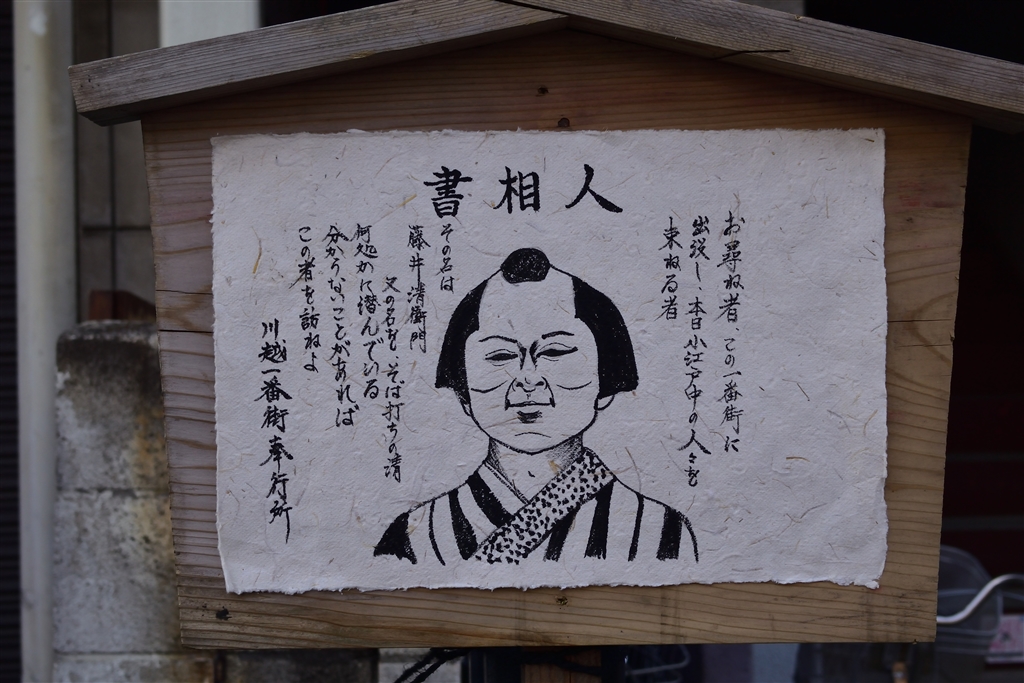 人相書
お尋ね者、この一番街に
出没し、本日小江戸中の人々を
束ねる者
その名は
藤井清衛門
又の名を、そば打ちの清
何処かに潜んでいる
分からないことがあれば
この者を訪ねよ
川越一番街奉行所